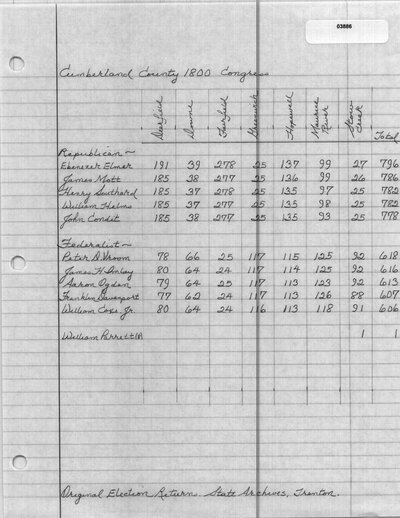 03886
Cumberland County 1800 Congress
Deerfield Downe Fairfield Greenwich Hopewell Maurice River Stow Creek Total
Republican ~
Ebenezer Elmer 191 39 278 25 137 99 27 796
James Mott 185 38 277 25 136 99 26 786
Henry Southard 185 37 278 25 135 97 25 782
William Helms 185 37 277 25 135 98 25 782
John Condit 185 38 277 25 135 93 25 778
Federalist ~
Peter D. Vroom 78 66 25 117 115 125 92 618
James H. Imlay 80 64 24 117 114 125 92 616
Aaron Ogden 79 64 25 117 113 123 92 613
Franklin Davenport 77 62 24 117 113 126 88 607
William Coxe Jr. 80 64 24 116 113 118 91 606
William Parrett 1 1
Original Election Return. State Archives, Trenton.